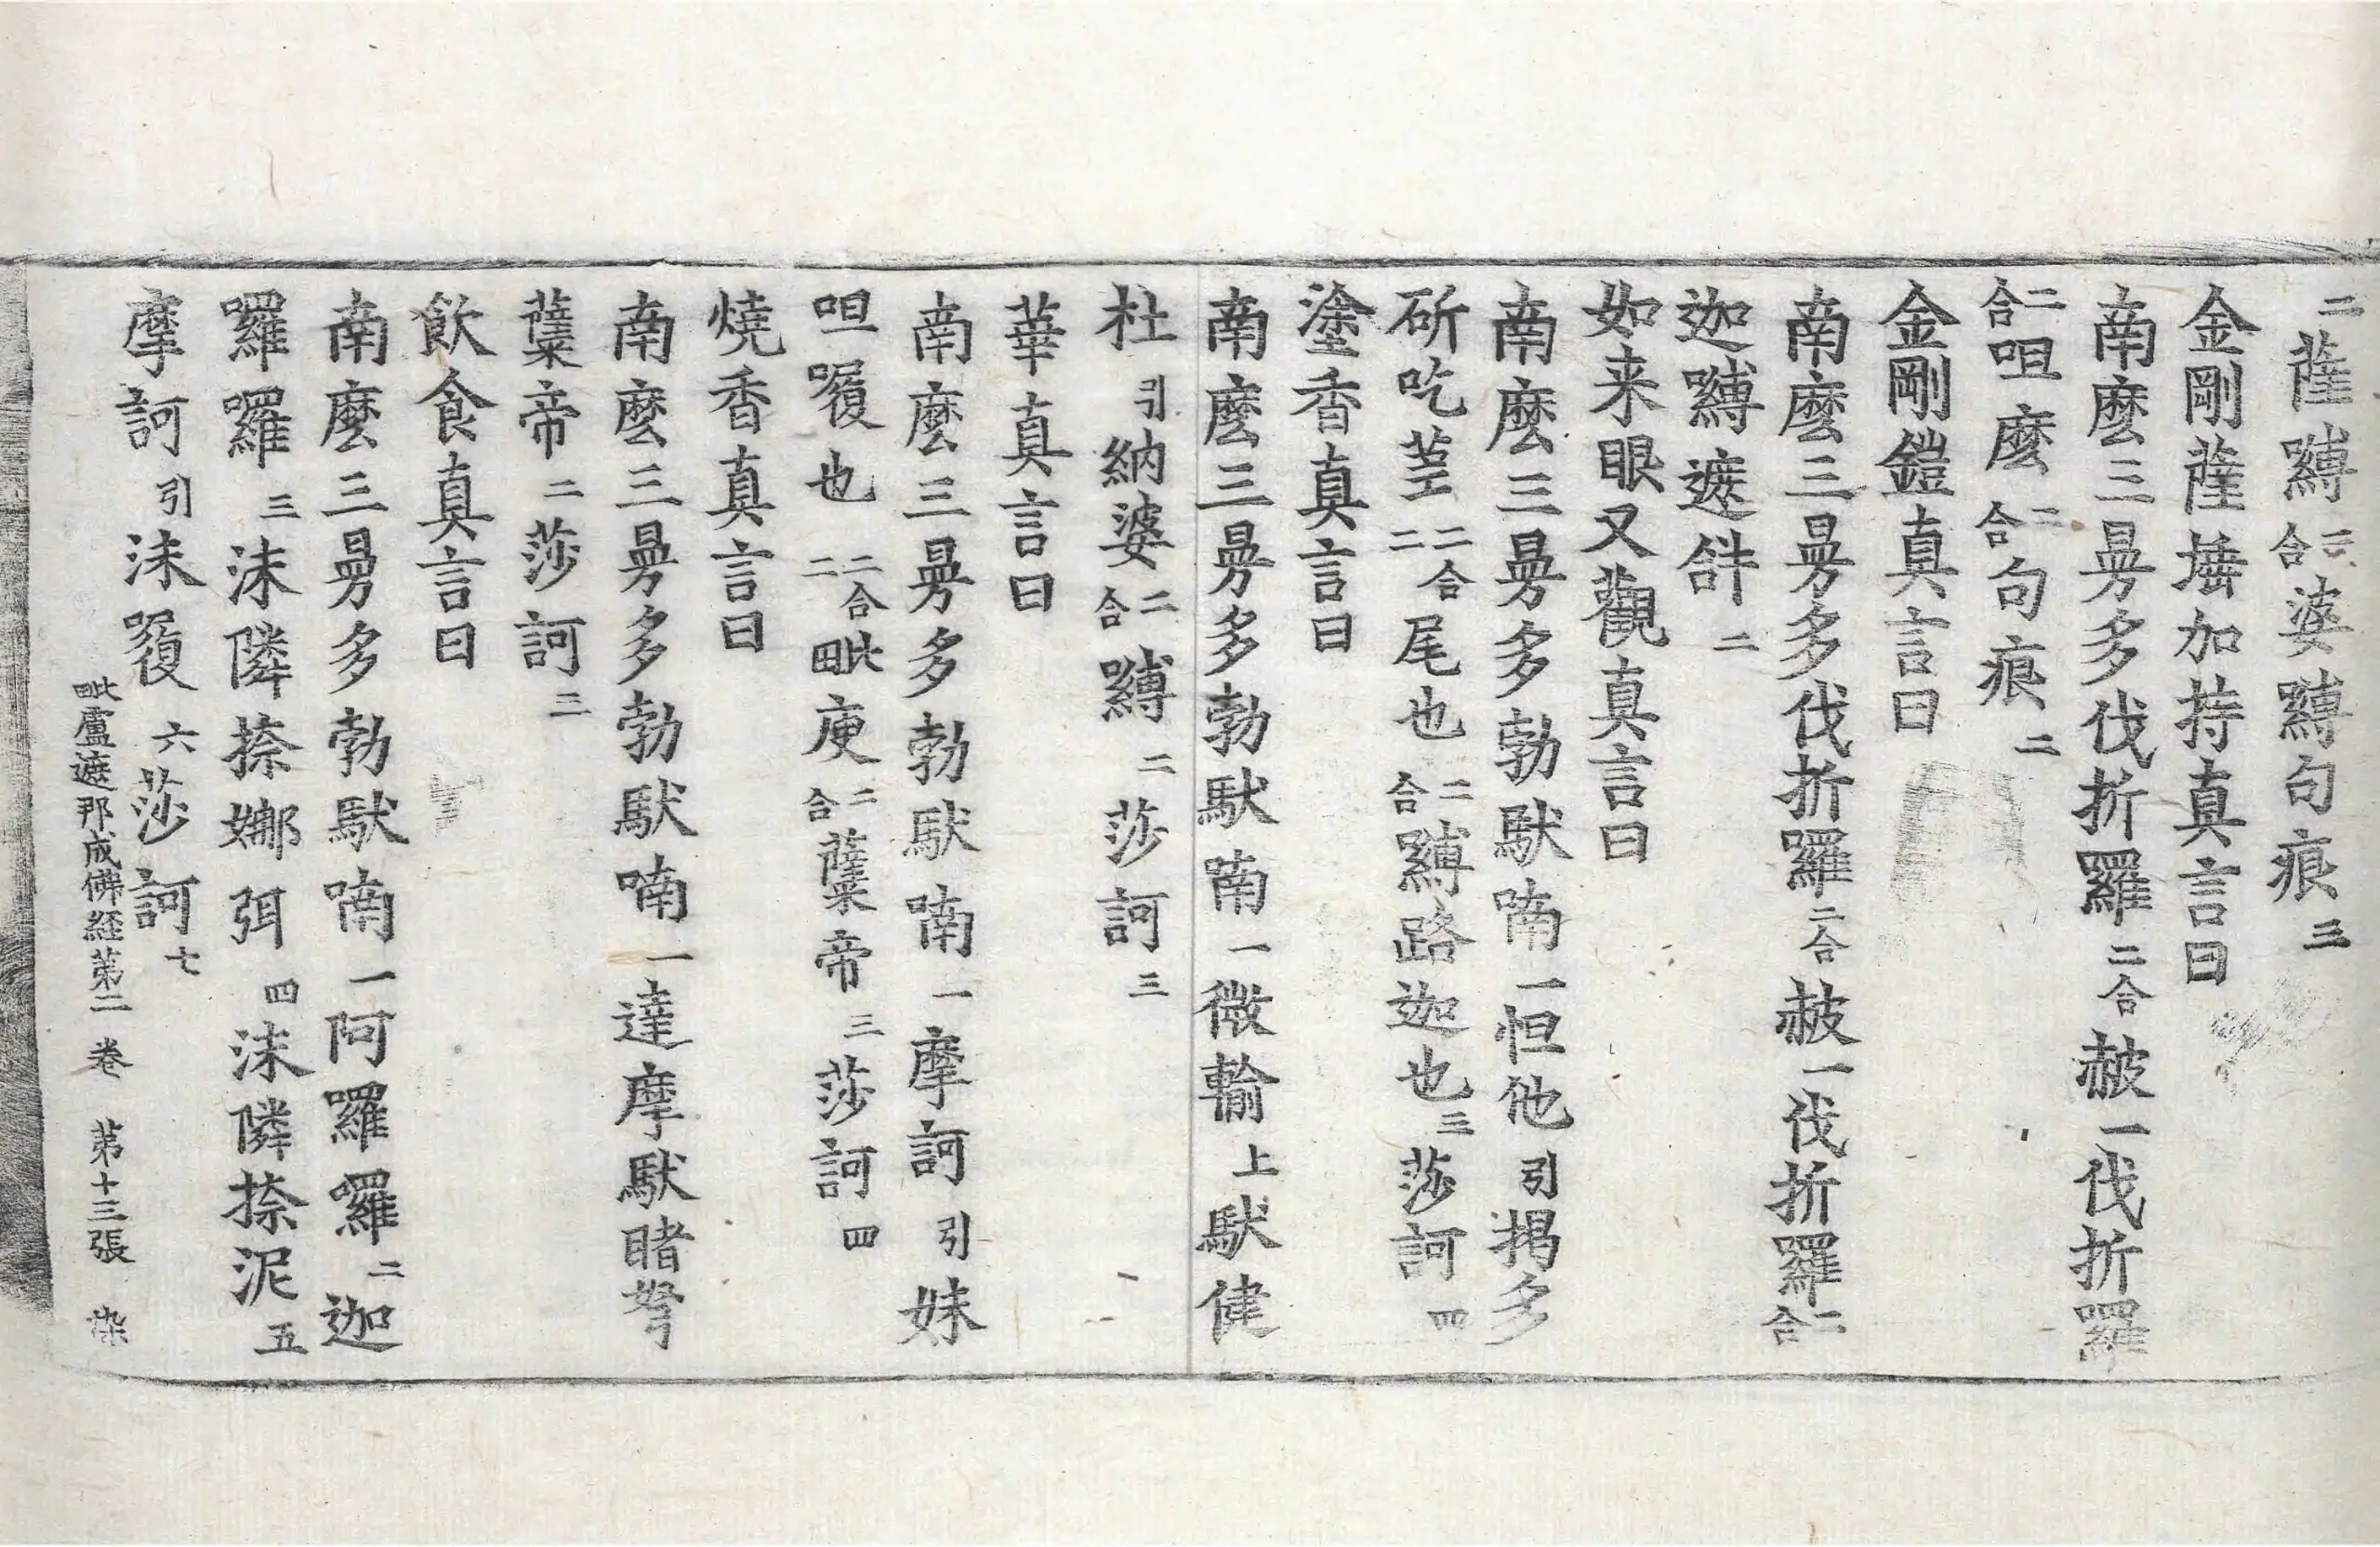 二薩嚩二合婆嚩句痕三
金剛薩埵加持真言曰
南麽三曼多伐折羅二合赧一伐折羅
二合呾麽二合句痕二
金剛鎧真言曰
南麽三曼多伐折羅二合赧一伐折羅二合
迦嚩遮𤙖二
如来眼又觀真言曰
南麽三曼多勃馱喃一怛他引揭多
斫吃蒭二合二尾也二合嚩路迦也三莎訶四
塗香真言曰
南麽三曼多勃馱喃一微輸上馱健
杜引納婆二合嚩二莎訶三
華真言曰
南麽三曼多勃馱喃一摩訶引妹
呾囄也二合二毗庾二合蘗帝三莎訶四
燒香真言曰
南麽三曼多勃馱喃一達摩馱睹弩
蘗帝二莎訶三
飲食真言曰
南麽三曼多勃馱喃一阿囉囉二迦
囉囉三沫隣捺娜弭四沫隣捺泥五
摩訶引沫囄六莎訶七
毗盧遮那成佛經第二卷 第十三張 染